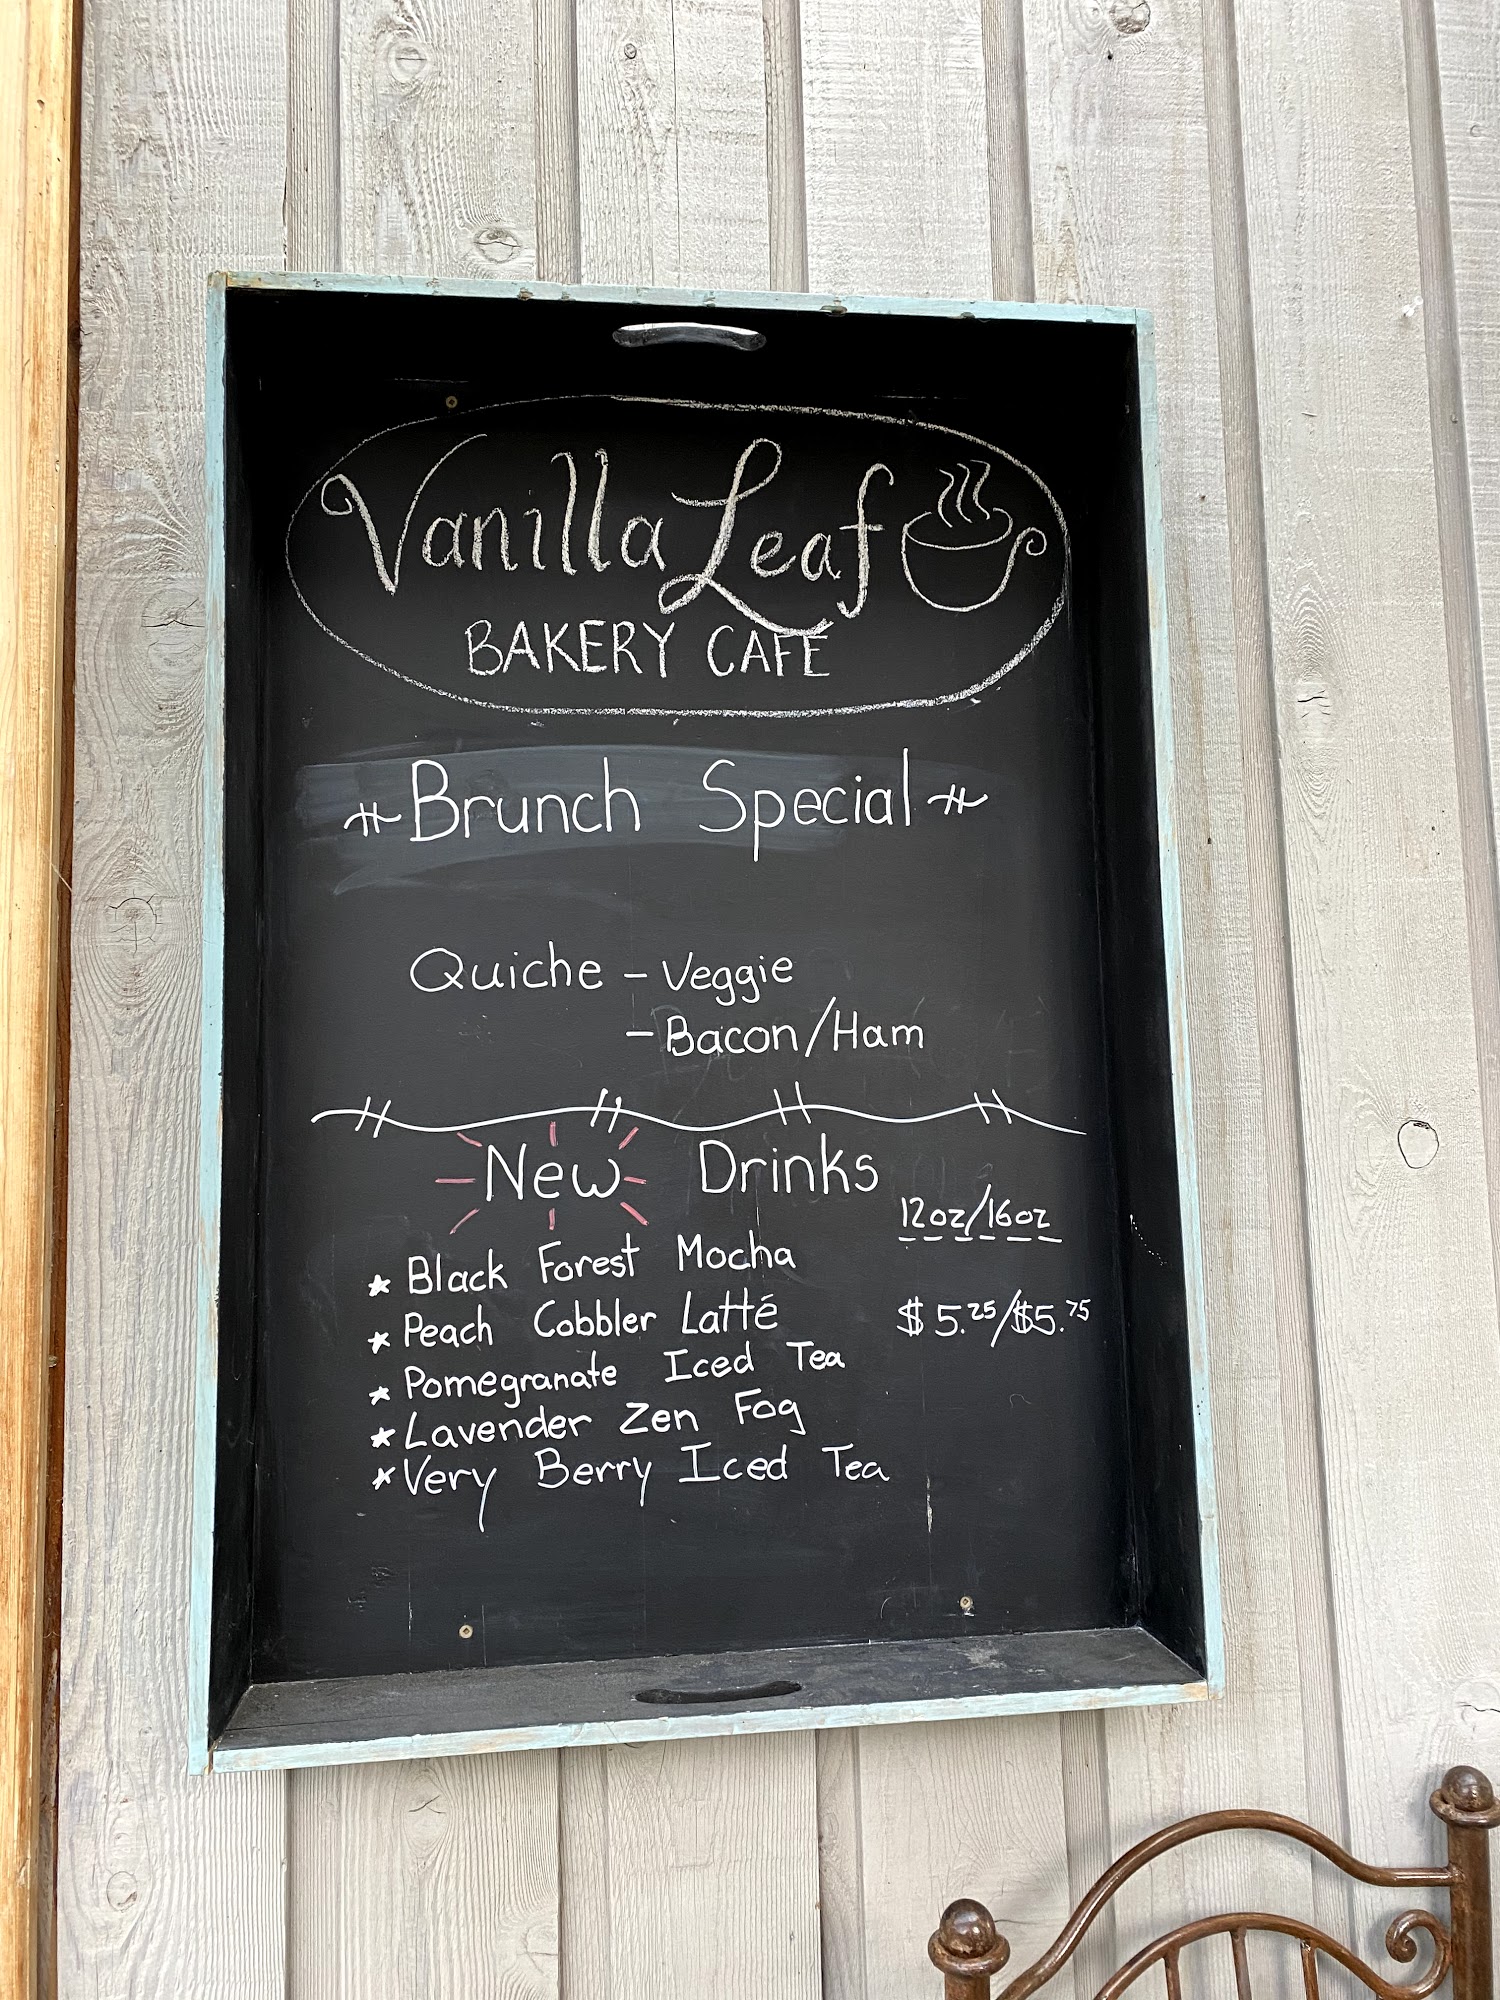 Vanilla Leaf
BAKERY CAFE
Brunch Special
Quiche - Veggie
- Bacon/Ham
New Drinks
12oz/16oz
* Black Forest Mocha
* Peach Cobbler Latté $5.25/$5.75
* Pomegranate Iced Tea
* Lavender Zen Fog
* Very Berry Iced Tea